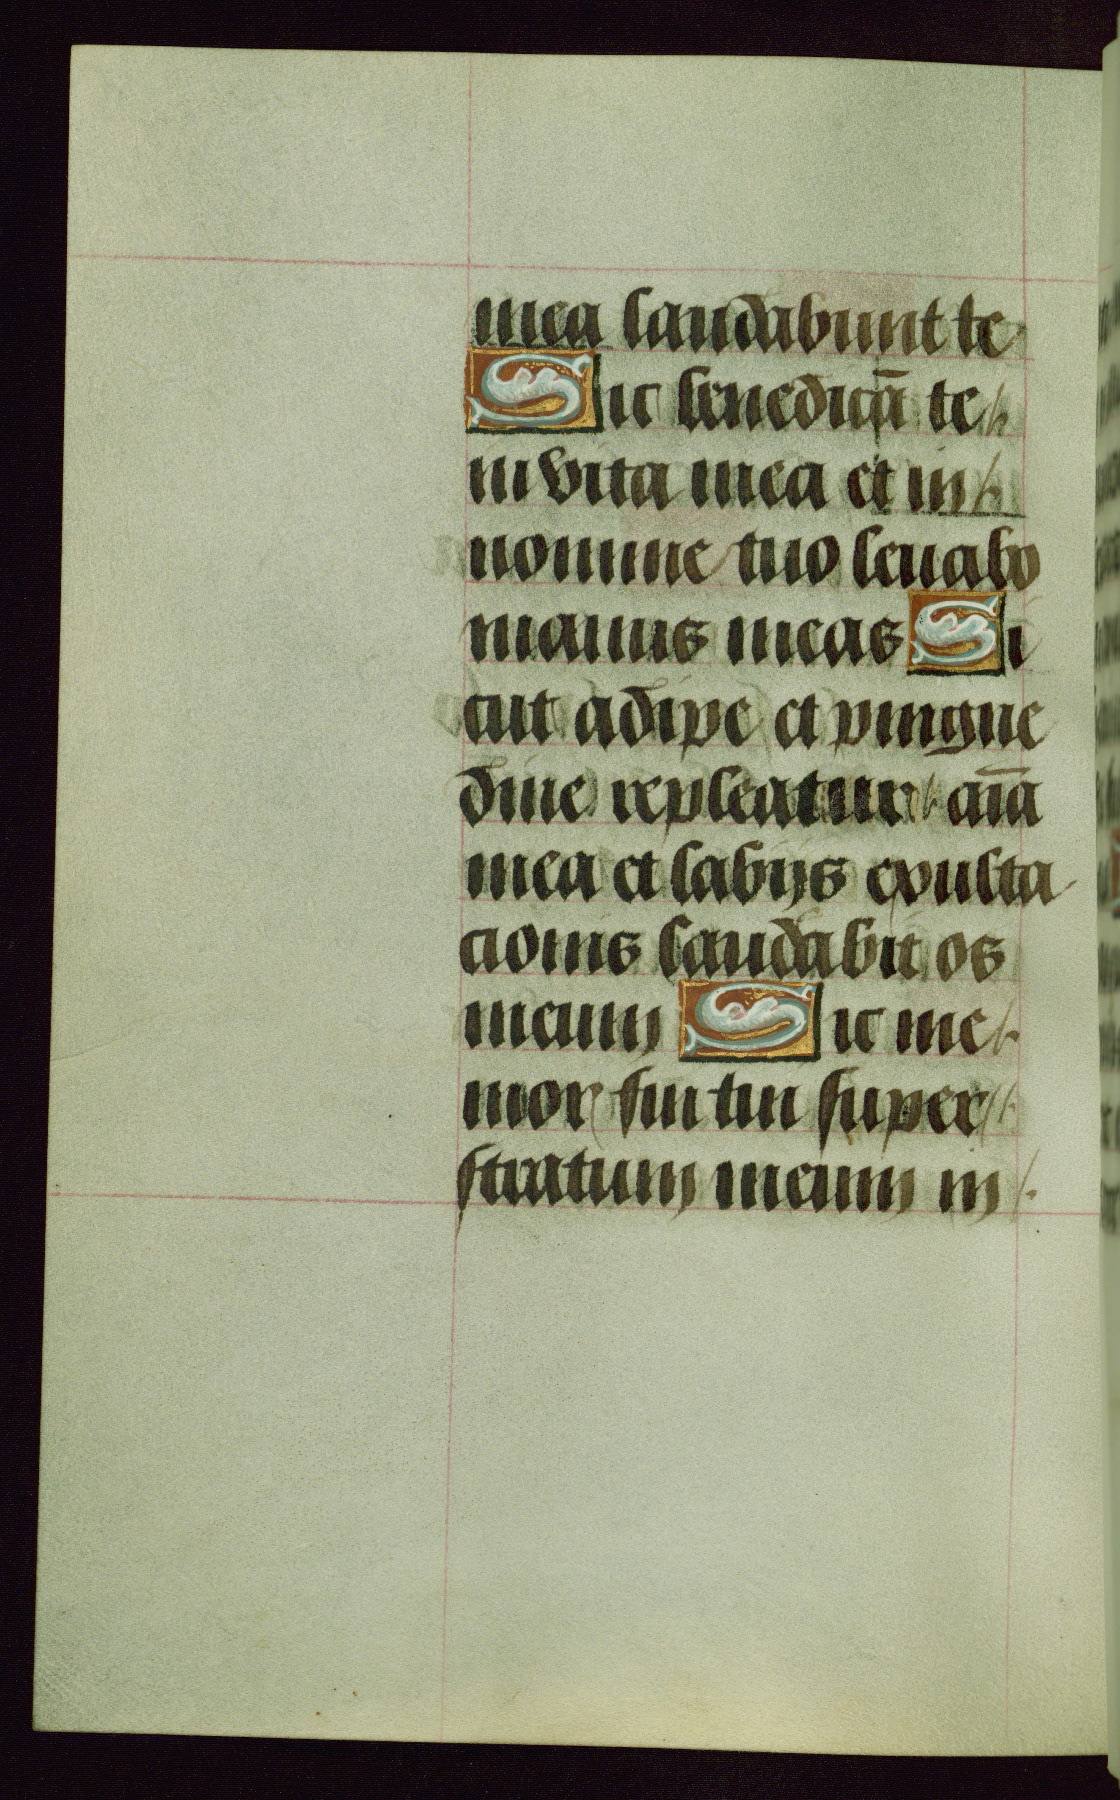 mea laudabunt te
Sic benedicā te
in vita mea et in
nomine tuo leuabo
manus meas Si
cut adipe et pingue
dine repleatur aīa
mea et labijs exulta
cionis laudabit os
meum Sic me
mor fui tui super
stratum meum in